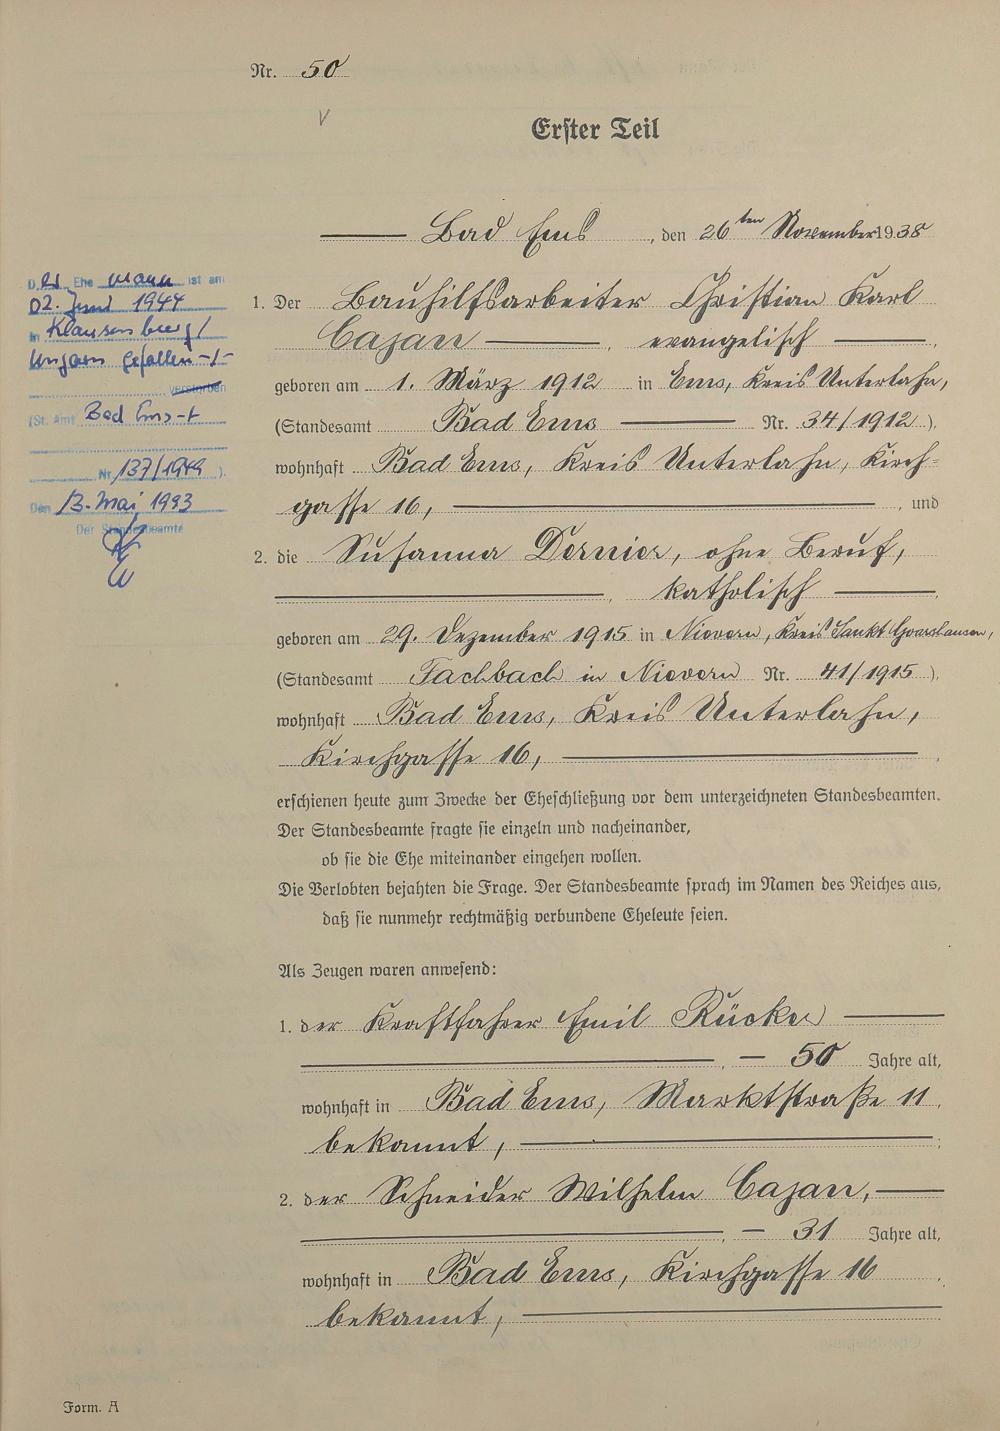 Nr. 50
Erster Teil
Bad Ems, den 26ten November 1938
1. Der Bauhilfsarbeiter Christian Karl
Cajan, evangelisch,
geboren am 1. März 1912 in Ems, Kreis Unterlahn,
(Standesamt Bad Ems Nr. 34/1912),
wohnhaft Bad Ems, Kreis Unterlahn, Kirch-
gasse 16, und
2. die Susanna Dernier, ohne Beruf,
katholisch,
geboren am 29. Dezember 1915 in Nievern, Kreis Sankt Goarshausen,
(Standesamt Fachbach in Nievern Nr. 41/1915),
wohnhaft Bad Ems, Kreis Unterlahn,
Kirchgasse 16,
erschienen heute zum Zwecke der Eheschließung vor dem unterzeichneten Standesbeamten.
Der Standesbeamte fragte sie einzeln und nacheinander,
ob sie die Ehe miteinander eingehen wollen.
Die Verlobten bejahten die Frage. Der Standesbeamte sprach im Namen des Reiches aus,
daß sie nunmehr rechtmäßig verbundene Eheleute seien.
Als Zeugen waren anwesend:
1. der Kraftfahrer Emil Rücker
50 Jahre alt,
wohnhaft in Bad Ems, Marktstraße 11
bekannt,
2. der Schneider Wilhelm Cajan,
31 Jahre alt,
wohnhaft in Bad Ems, Kirchgasse 16
bekannt,
Form. A
Der Ehemann ist am
02. Juni 1944
in Klausenburg/
Ungarn gefallen -/-
verstorben
(St. Amt Bad Ems
Nr. 137/1949).
Den 13. Mai 1993
Der Standesbeamte